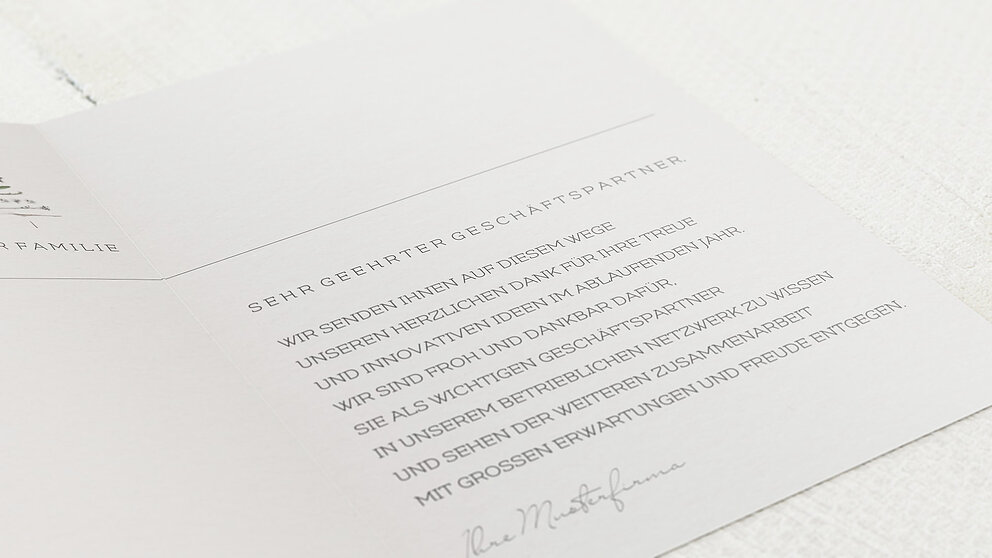 R FAMILIE
SEHR GEEHRTER GESCHÄFTSPARTNER,
WIR SENDEN IHNEN AUF DIESEM WEGE
UNSEREN HERZLICHEN DANK FÜR IHRE TREUE
UND INNOVATIVEN IDEEN IM ABLAUFENDEN JAHR.
WIR SIND FROH UND DANKBAR DAFÜR,
SIE ALS WICHTIGEN GESCHÄFTSPARTNER
IN UNSEREM BETRIEBLICHEN NETZWERK ZU WISSEN
UND SEHEN DER WEITEREN ZUSAMMENARBEIT
MIT GROSSEN ERWARTUNGEN UND FREUDE ENTGEGEN.
Ihre Musterfirma